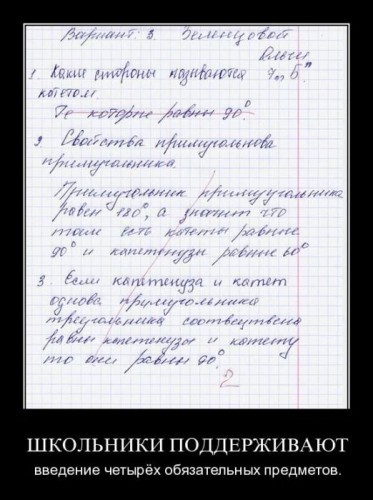 Вариант: 3. Земенцовой
Ольги
7 „Б"
1. Какие стороны называются
катетом.
Те которые равны 90°.
2. Свойства прямуголнова
прямуголника.
Прямуголник прямууголника
равен 180°, а значит что
там есть катеты равные
90° и капетенузы равные 60°
3. Если капетенуза и катет
однова прямуголника
треуголника соотвецтвена
равны капетенузы и катету
то они равны 90°.
2
ШКОЛЬНИКИ ПОДДЕРЖИВАЮТ
введение четырёх обязательных предметов.